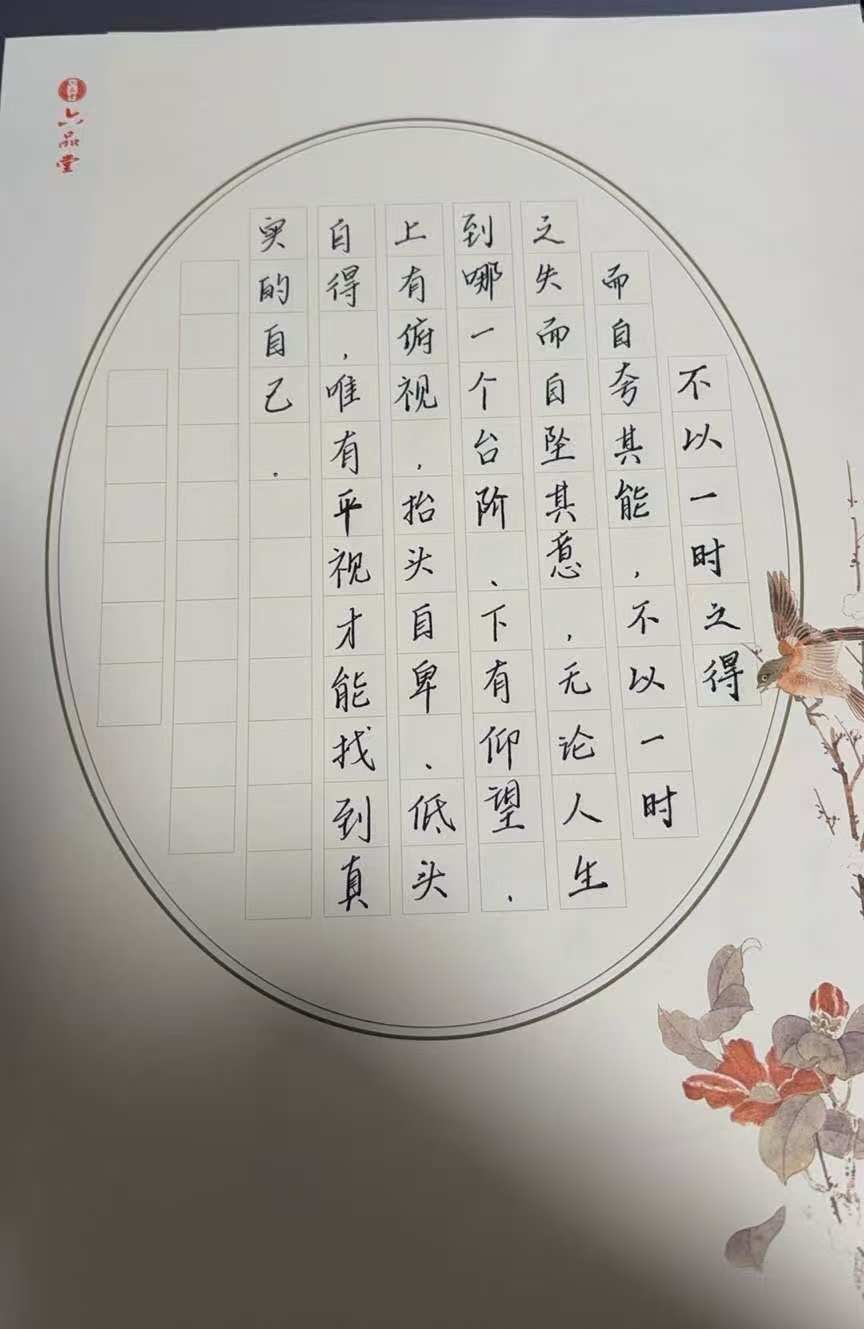 六品堂
不以一时之得
而自夸其能，不以一时
之失而自坠其意，无论人生
到哪一个台阶、下有仰望.
上有俯视，抬头自卑、低头
自得，唯有平视才能找到真
实的自己.